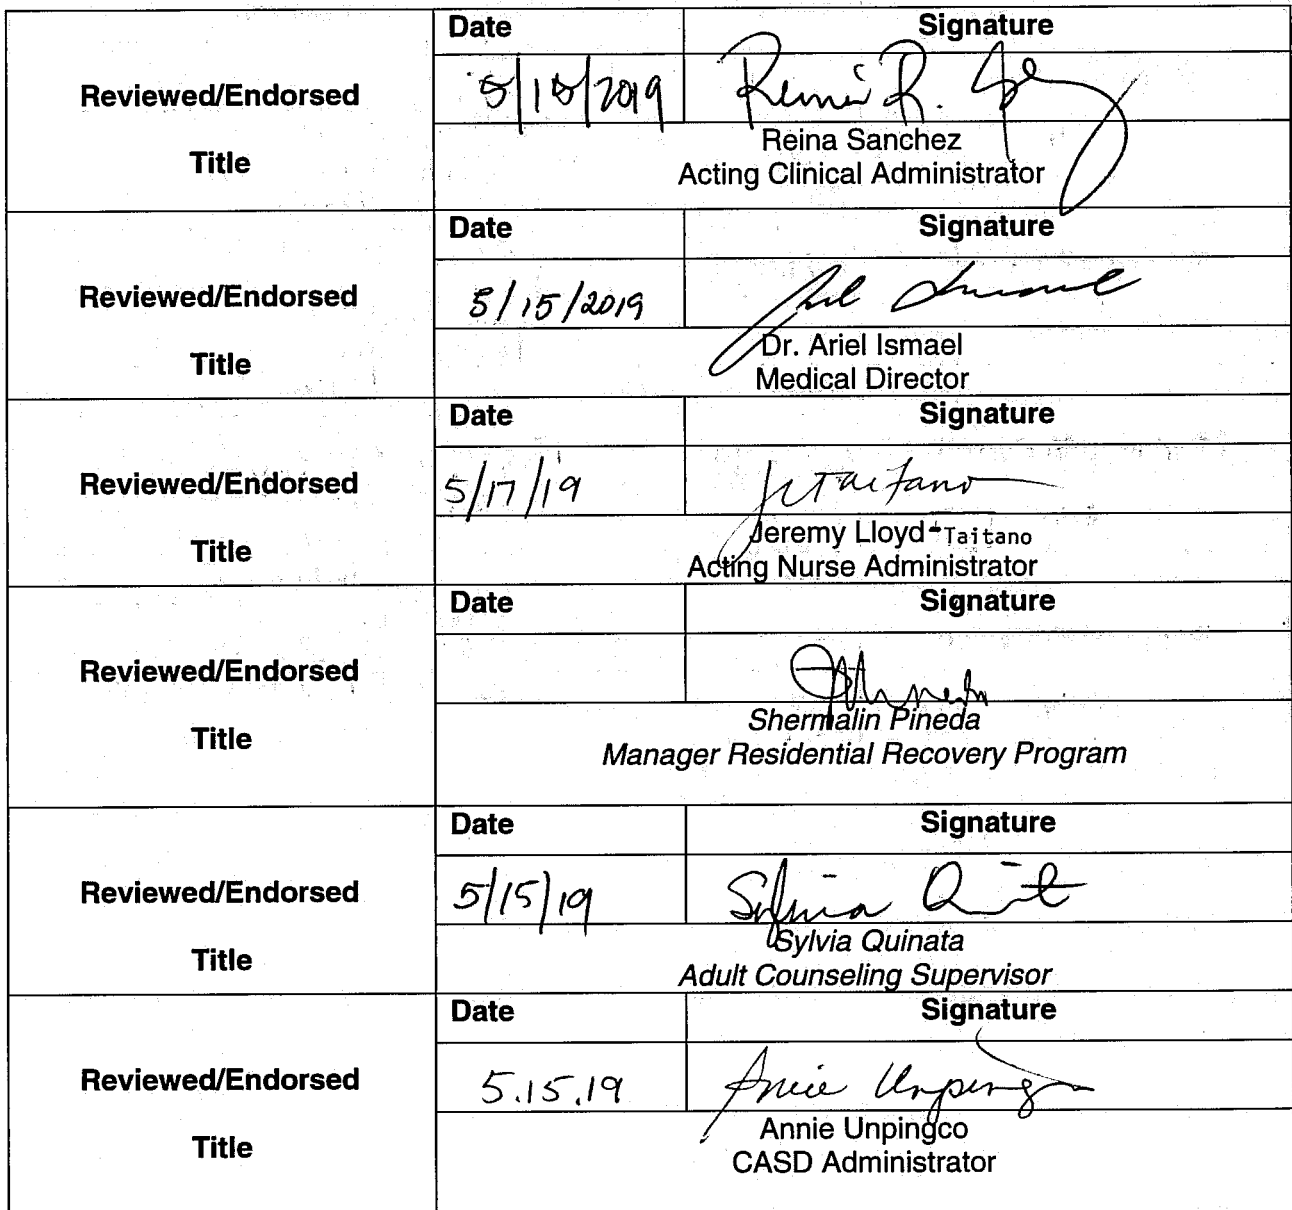 Date Signature
Reviewed/Endorsed 5/15/2019 Reina R.
Title Reina Sanchez
Acting Clinical Administrator
Date Signature
Reviewed/Endorsed 5/15/2019
Title Dr. Ariel Ismael
Medical Director
Date Signature
Reviewed/Endorsed 5/17/19 JLTaitano
Title Jeremy Lloyd-Taitano
Acting Nurse Administrator
Date Signature
Reviewed/Endorsed
Title Shermalin Pineda
Manager Residential Recovery Program
Date Signature
Reviewed/Endorsed 5/15/19 Sylvia
Title Sylvia Quinata
Adult Counseling Supervisor
Date Signature
Reviewed/Endorsed 5.15.19 Annie Unpingco
Title Annie Unpingco
CASD Administrator